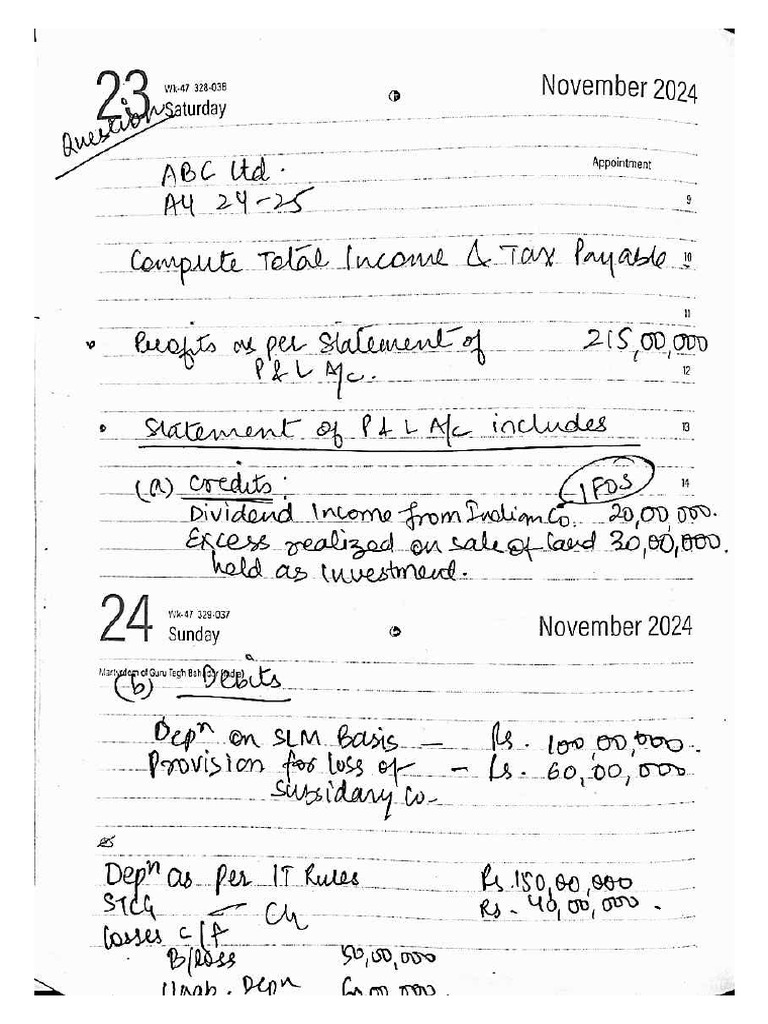 23 Wk-47 328-038 November 2024
Saturday
Question
ABC Ltd. Appointment
AY 24-25 9
Compute Total Income & Tax Payable. 10
11
Profits as per Statement of 215,00,000
P & L A/c. 12
Statement of P & L A/c includes 13
(a) Credits: IFOS 14
Dividend Income from Indian Co. 20,00,000.
Excess realized on sale of land 30,00,000.
held as investment.
24 Wk-47 329-037 November 2024
Sunday
(b) Debits
Depn on SLM Basis — Rs. 100,00,000.
Provision for loss of — Rs. 60,00,000
Subsidary Co-
Depn as per IT Rules Rs. 150,00,000
STCG Rs. 40,00,000.
Losses c/f
B/Loss 50,00,000
Unab. Depn